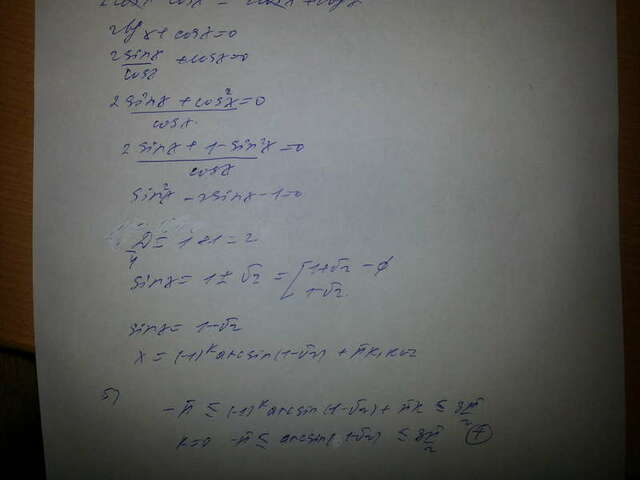 2tgx + cosx = 0
2sinx/cosx + cosx = 0
2sinx + cos²x/cosx = 0
2sinx + 1 - sin²x/cosx = 0
sin²x - 2sinx - 1 = 0
D/4 = 1 + 1 = 2
sinx = 1 ± √2 = [1+√2 - ∅
1-√2.
sinx = 1-√2
x = (-1)ᵏ arcsin(1-√2) + πk, k∈Z
б)
-π ≤ (-1)ᵏ arcsin(1-√2) + πk ≤ 3π/2
k=0 -π ≤ arcsin(1-√2) ≤ 3π/2 (+)